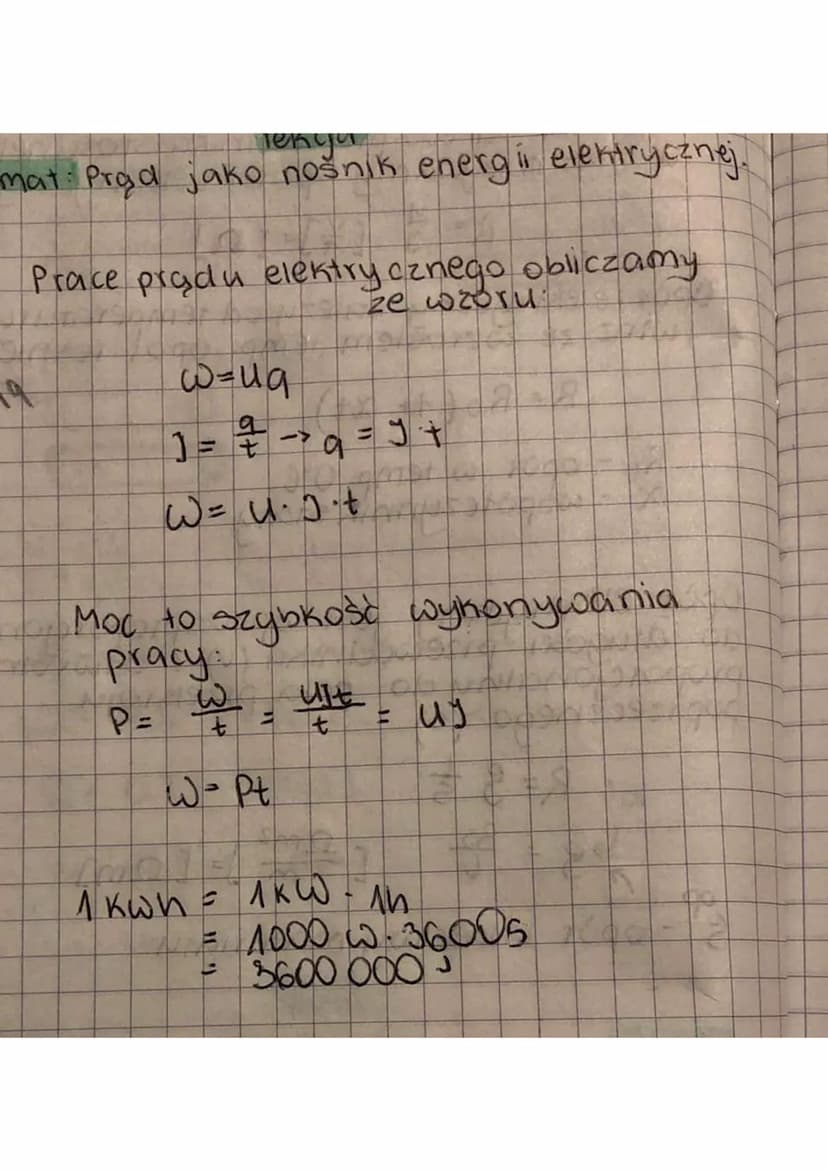 lekcja
mat: Prąd jako nośnik energii elektrycznej.
Prace prądu elektrycznego obliczamy
ze wzoru:
W=Uq
J = q/t -> q = J·t
W = U·J·t
Moc to szybkość wykonywania
pracy:
P = W/t = UJt/t = UJ
W = Pt
1 kWh = 1kW · 1h
= 1000 W · 3600s
= 3600 000 J